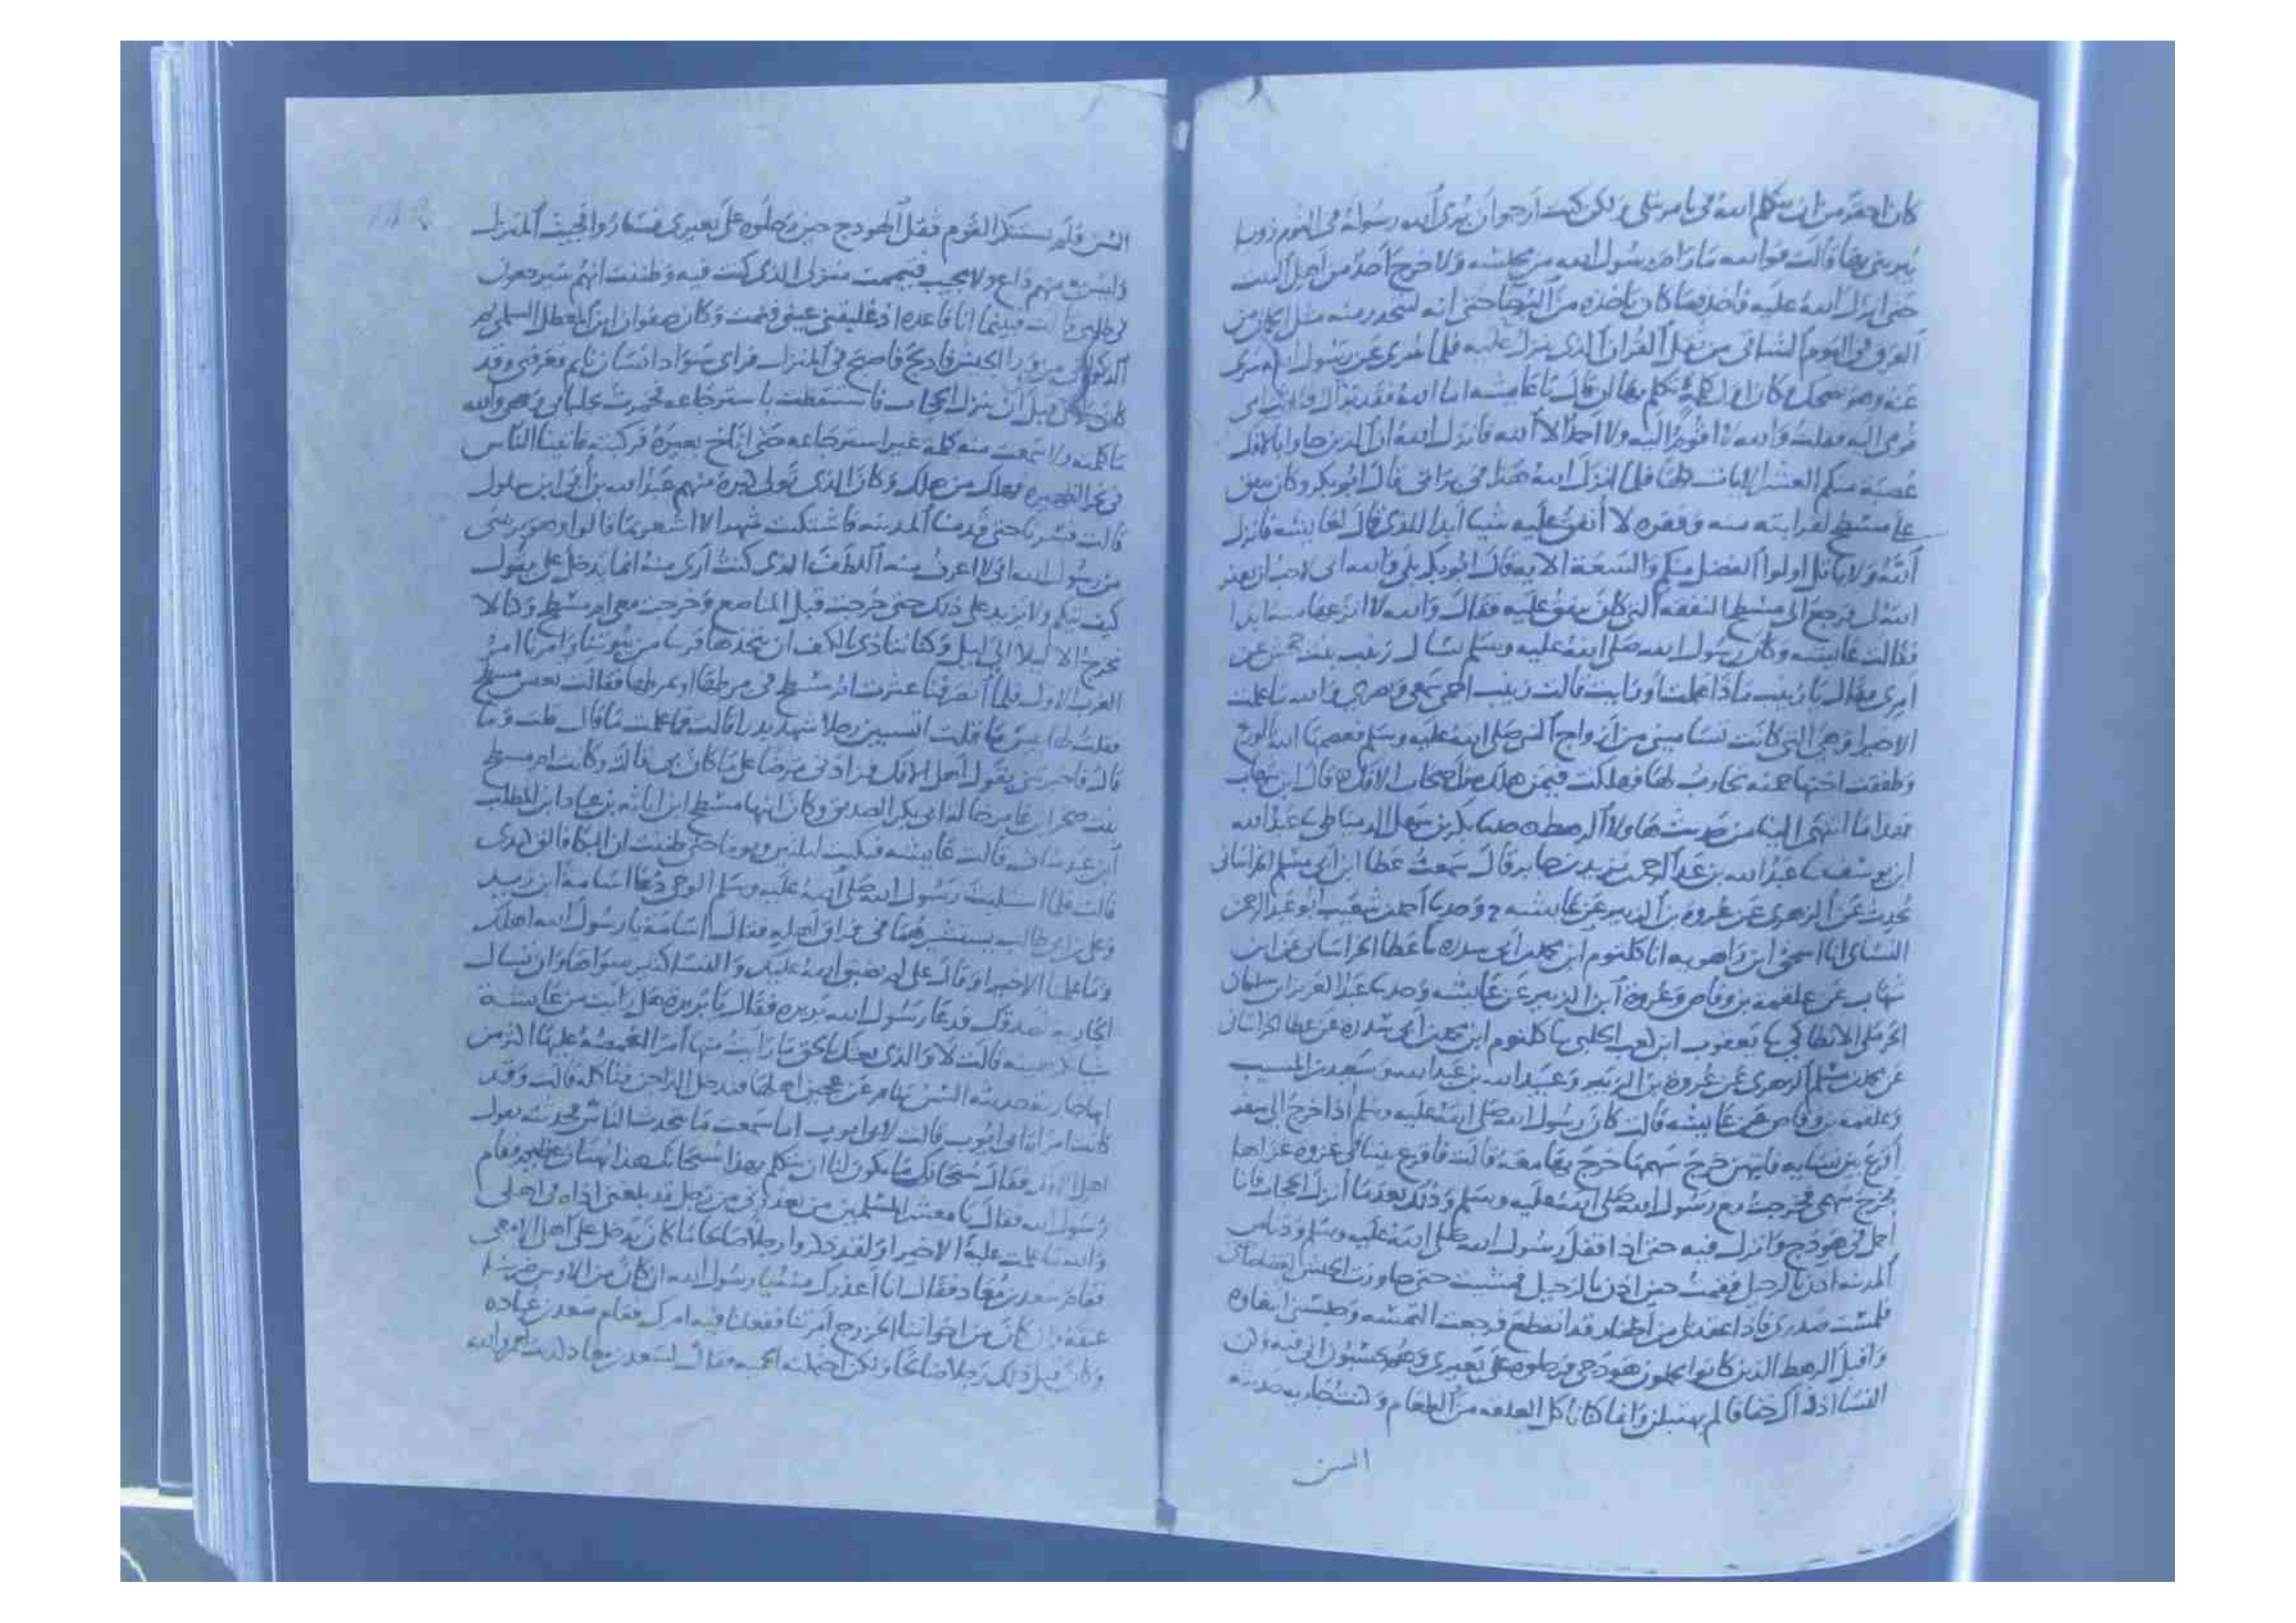 كان احقر من ان يتكلم الله في بامر يتلى ولكن كنت ارجوا ان يرى الله رسوله في النوم رويا
يبريني بها قالت فوالله ما رام رسول الله من مجلسه ولا خرج احد من اهل البيت
حتى انزل الله عليه فاخذه ما كان ياخذه من البرحا حتى انه ليتحدر منه مثل الجمان من
العرق في اليوم الشاتي من ثقل القران الذي ينزل عليه فلما سري عن رسول الله سري
عنه وهو يضحك وكان اول كلمة تكلم بها ان قال يا عايشه اما الله فقد براك فقالت امي
قومي اليه فقلت والله لا اقوم اليه ولا احمد الا الله فانزل الله ان الذين جاوا بالافك
عصبة منكم العشر الايات كلها فلما انزل الله هذا في براتي قال ابو بكر وكان ينفق
على مسطح لقرابته منه وفقره لا انفق عليه شيا ابدا للذي قال لعايشه فانزل
الله ولا ياتل اولوا الفضل منكم والسعة الايه قال ابو بكر بلى والله اني لاحب ان يغفر
الله لي فرجع الى مسطح النفقه التي كان ينفق عليه فقال والله لا انزعها منه ابدا
فقالت عايشه وكان رسول الله صلى الله عليه وسلم يسال زينب بنت جحش عن
امري فقال يا زينب ماذا علمت او رايت قالت زينب احمي سمعي وبصري والله ما علمت
الا خيرا وهي التي كانت تساميني من ازواج النبي صلى الله عليه وسلم فعصمها الله بالورع
وطفقت اختها حمنه تحارب لها فهلكت فيمن هلك من اصحاب الافك قال ابن شهاب
فهذا ما انتهى الينا من حديث هاولا الرهط حدثنا بكر بن سهل الدمياطي ثنا عبد الله
ابن يوسف ثنا عبد الله بن عبد الرحمن بن يزيد بن جابر قال سمعت عطا ابن ابي مسلم الخراساني
يحدث عن الزهري عن عروة بن الزبير عن عايشه ح وحدثنا احمد بن شعيب ابو عبد الرحمن
النساي انا اسحق ابن راهويه انا كلثوم ابن محمد بن ابي سدره ثنا عطا الخراساني عن ابن
شهاب عن علقمه بن وقاص وعروة ابن الزبير عن عايشه وحدثنا عبد العزيز ابن سليمان
الحرملي الانطاكي ثنا يعقوب ابن كعب الحلبي ثنا كلثوم ابن محمد بن ابي سدره عن عطا الخراساني
عن محمد بن مسلم الزهري عن عروة بن الزبير وعبيد الله بن عبد الله وسعيد بن المسيب
وعلقمه بن وقاص عن عايشه قالت كان رسول الله صلى الله عليه وسلم اذا خرج الى سفر
اقرع بين نسايه فايتهن خرج سهمها خرج بها معه قالت فاقرع بيننا في غزوه غزاها
فخرج سهمي فخرجت مع رسول الله صلى الله عليه وسلم وذلك بعد ما انزل الحجاب فانا
احمل في هودج وانزل فيه حتى اذا قفل رسول الله صلى الله عليه وسلم ودنا من
المدينه اذن بالرحيل فقمت حين اذن بالرحيل فمشيت حتى جاوزت الجيش
فلمست صدري فاذا عقد لي من اظفار قد انقطع فرجعت التمسه وحبسني ابتغاوه
واقبل الرهط الذين كانوا يحملون هودجي فرحلوه على بعيري وهم يحسبون اني فيه وكن
النسا اذ ذاك خفافا لم يهبلن وانما كانا ناكل العلقه من الطعام وكنت جاريه حديثه
السن
السن فلم يستنكر القوم ثقل الهودج حين رحلوه على بعيري فساروا فجيت المنزل
وليس به منهم داع ولا مجيب فتيممت منزلي الذي كنت فيه وظننت انهم سيرجعون
في طلبي قالت فبينما انا قاعده اذ غلبتني عيني فنمت وكان صفوان ابن المعطل السلمي ثم
الذكواني من ورا الجيش فادلج فاصبح في المنزل فراى سواد انسان نايم فعرفني وقد
كان راني قبل ان ينزل الحجاب فاستيقظت باسترجاعه فخمرت بجلبابي وجهي والله
ما كلمته ولا سمعت منه كلمه غير استرجاعه حتى اناخ بعيره فركبته فاتينا الناس
في نحر الظهيره فهلك من هلك وكان الذي تولى كبره منهم عبد الله بن ابي ابن سلول
قالت فسرنا حتى قدمنا المدينه فاشتكيت شهرا لا اشعر بما قالوا وهو يريبني
من رسول الله اني لا اعرف منه اللطف الذي كنت ارى منه انما يدخل علي يقول
كيف تيكم ولا يزيد على ذلك حتى خرجت قبل المناصع وخرجت معي ام مسطح وكنا لا
نخرج الا ليلا الى ليل وكنا نتاذى بالكنف ان نتخذها قريبا من بيوتنا وامرنا امر
العرب الاول فلما انصرفنا عثرت ام مسطح في مرطها او بمرطها فقالت تعس مسطح
فقلت لها بيس ما قلت اتسبين رجلا شهد بدرا قالت فما علمت ما قال قلت وما
قال فاخبرتني بقول اهل الافك فزادني مرضا على ما كان بي قالت وكانت ام مسطح
بنت صخر ابن عامر خالة ابي بكر الصديق وكان ابنها مسطح ابن اثاثه بن عباد ابن المطلب
ابن عبد مناف قالت عايشه فبكيت ليلتين ويوما حتى ظننت ان البكا فالق كبدي
قالت فلما استلبث رسول الله صلى الله عليه وسلم الوحي دعا اسامة ابن زيد
وعلي بن ابي طالب يستشيرهما في فراق اهله فقال اسامة يا رسول الله اهلك
وما علمنا الا خيرا وقال علي لم يضيق الله عليك والنسا كثير سواها وان تسال
الجاريه تصدقك فدعا رسول الله بريره فقال يا بريره هل رايت من عايشة
شيا قالت لا والذي بعثك بالحق ما رايت منها امرا اغمصه عليها اكثر من
انها جاريه حديثه السن تنام عن عجين اهلها فيدخل الداجن فياكله قالت وقد
كانت امراة ابي ايوب قالت لابي ايوب اما سمعت ما يتحدث الناس فحدثته بقول
اهل الافك فقال سبحانك ما يكون لنا ان نتكلم بهذا سبحانك هذا بهتان عظيم فقام
رسول الله فقال يا معشر المسلمين من يعذرني من رجل قد بلغني اذاه في اهلي
والله ما علمت عليه الا خيرا ولقد ذكروا رجلا صالحا ما كان يدخل على اهلي الا معي
فقام سعد بن معاذ فقال انا اعذرك منه يا رسول الله ان كان من الاوس ضربنا
عنقه وان كان من اخواننا الخزرج امرتنا ففعلنا فيه امرك فقام سعد بن عباده
وكان قبل ذلك رجلا صالحا ولكن احتملته الحميه فقال لسعد بن معاذ كذبت لعمر الله